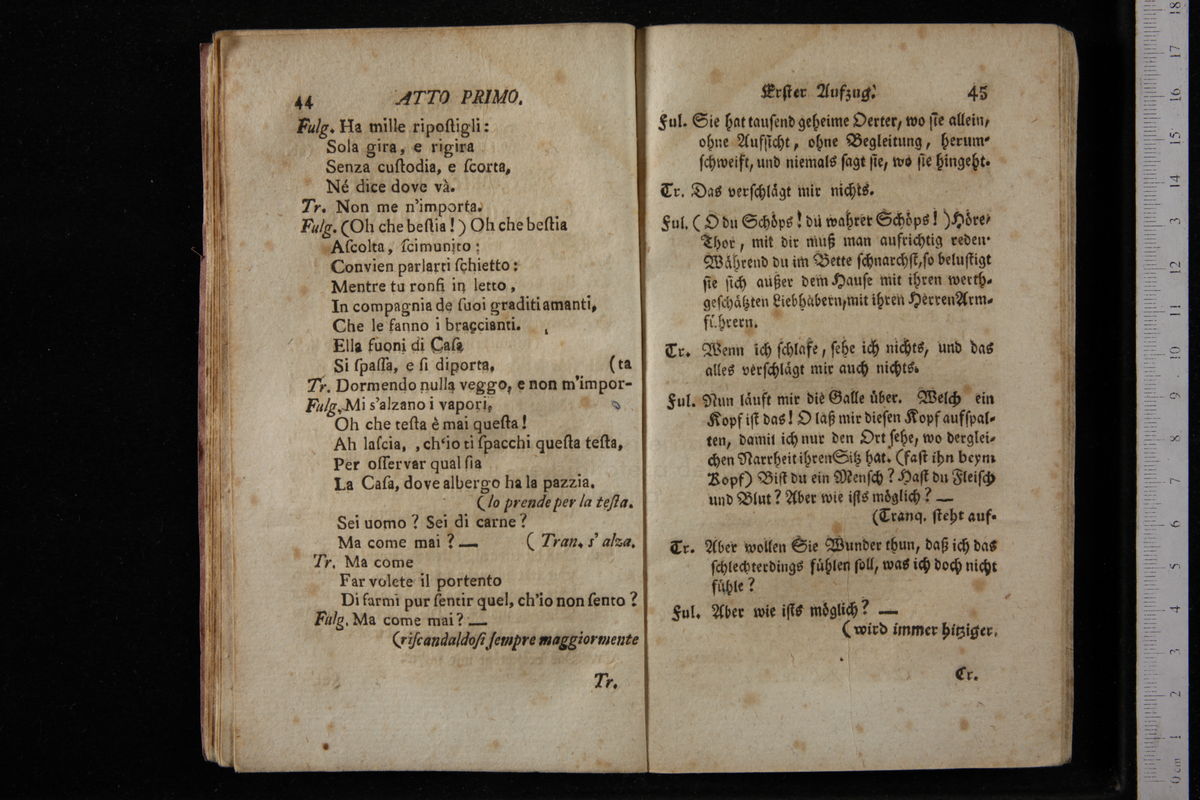 44 ATTO PRIMO.
Fulg. Ha mille ripoſtigli:
Sola gira, e rigira
Senza cuſtodia, e ſcorta,
Né dice dove và.
Tr. Non me n'importa.
Fulg. (Oh che beſtia!) Oh che beſtia
Aſcolta, ſcimunito:
Convien parlarti ſchietto:
Mentre tu ronſi in letto,
In compagnia de ſuoi graditi amanti,
Che le fanno i braccianti.
Ella fuoni di Caſa
Si ſpaſſa, e ſi diporta, (ta
Tr. Dormendo nulla veggo, e non m'impor-
Fulg. Mi s'alzano i vapori,
Oh che teſta è mai queſta!
Ah laſcia, , ch'io ti ſpacchi queſta teſta,
Per oſſervar qual ſia
La Caſa, dove albergo ha la pazzia.
(lo prende per la teſta.
Sei uomo? Sei di carne?
Ma come mai? — (Tran. s'alza.
Tr. Ma come
Far volete il portento
Di farmi pur ſentir quel, ch'io non ſento?
Fulg. Ma come mai? —
(riſcandaldoſi ſempre maggiormente
Tr.
Erſter Aufzug. 45
Ful. Sie hat tauſend geheime Oerter, wo ſie allein,
ohne Aufſicht, ohne Begleitung, herum-
ſchweift, und niemals ſagt ſie, wo ſie hingeht.
Tr. Das verſchlägt mir nichts.
Ful. (O du Schöps! du wahrer Schöps!) Höre,
Thor, mit dir muß man aufrichtig reden.
Während du im Bette ſchnarchſt, ſo beluſtigt
ſie ſich außer dem Hauſe mit ihren werth-
geſchätzten Liebhabern, mit ihren Herren Arm-
führern.
Tr. Wenn ich ſchlafe, ſehe ich nichts, und das
alles verſchlägt mir auch nichts.
Ful. Nun läuft mir die Galle über. Welch ein
Kopf iſt das! O laß mir dieſen Kopf aufſpal-
ten, damit ich nur den Ort ſehe, wo derglei-
chen Narrheit ihren Sitz hat. (faſt ihn beym
Kopf) Biſt du ein Menſch? Haſt du Fleiſch
und Blut? Aber wie iſts möglich? —
(Tranq. ſteht auf.
Tr. Aber wollen Sie Wunder thun, daß ich das
ſchlechterdings fühlen ſoll, was ich doch nicht
fühle?
Ful. Aber wie iſts möglich? —
(wird immer hitziger.
Tr.